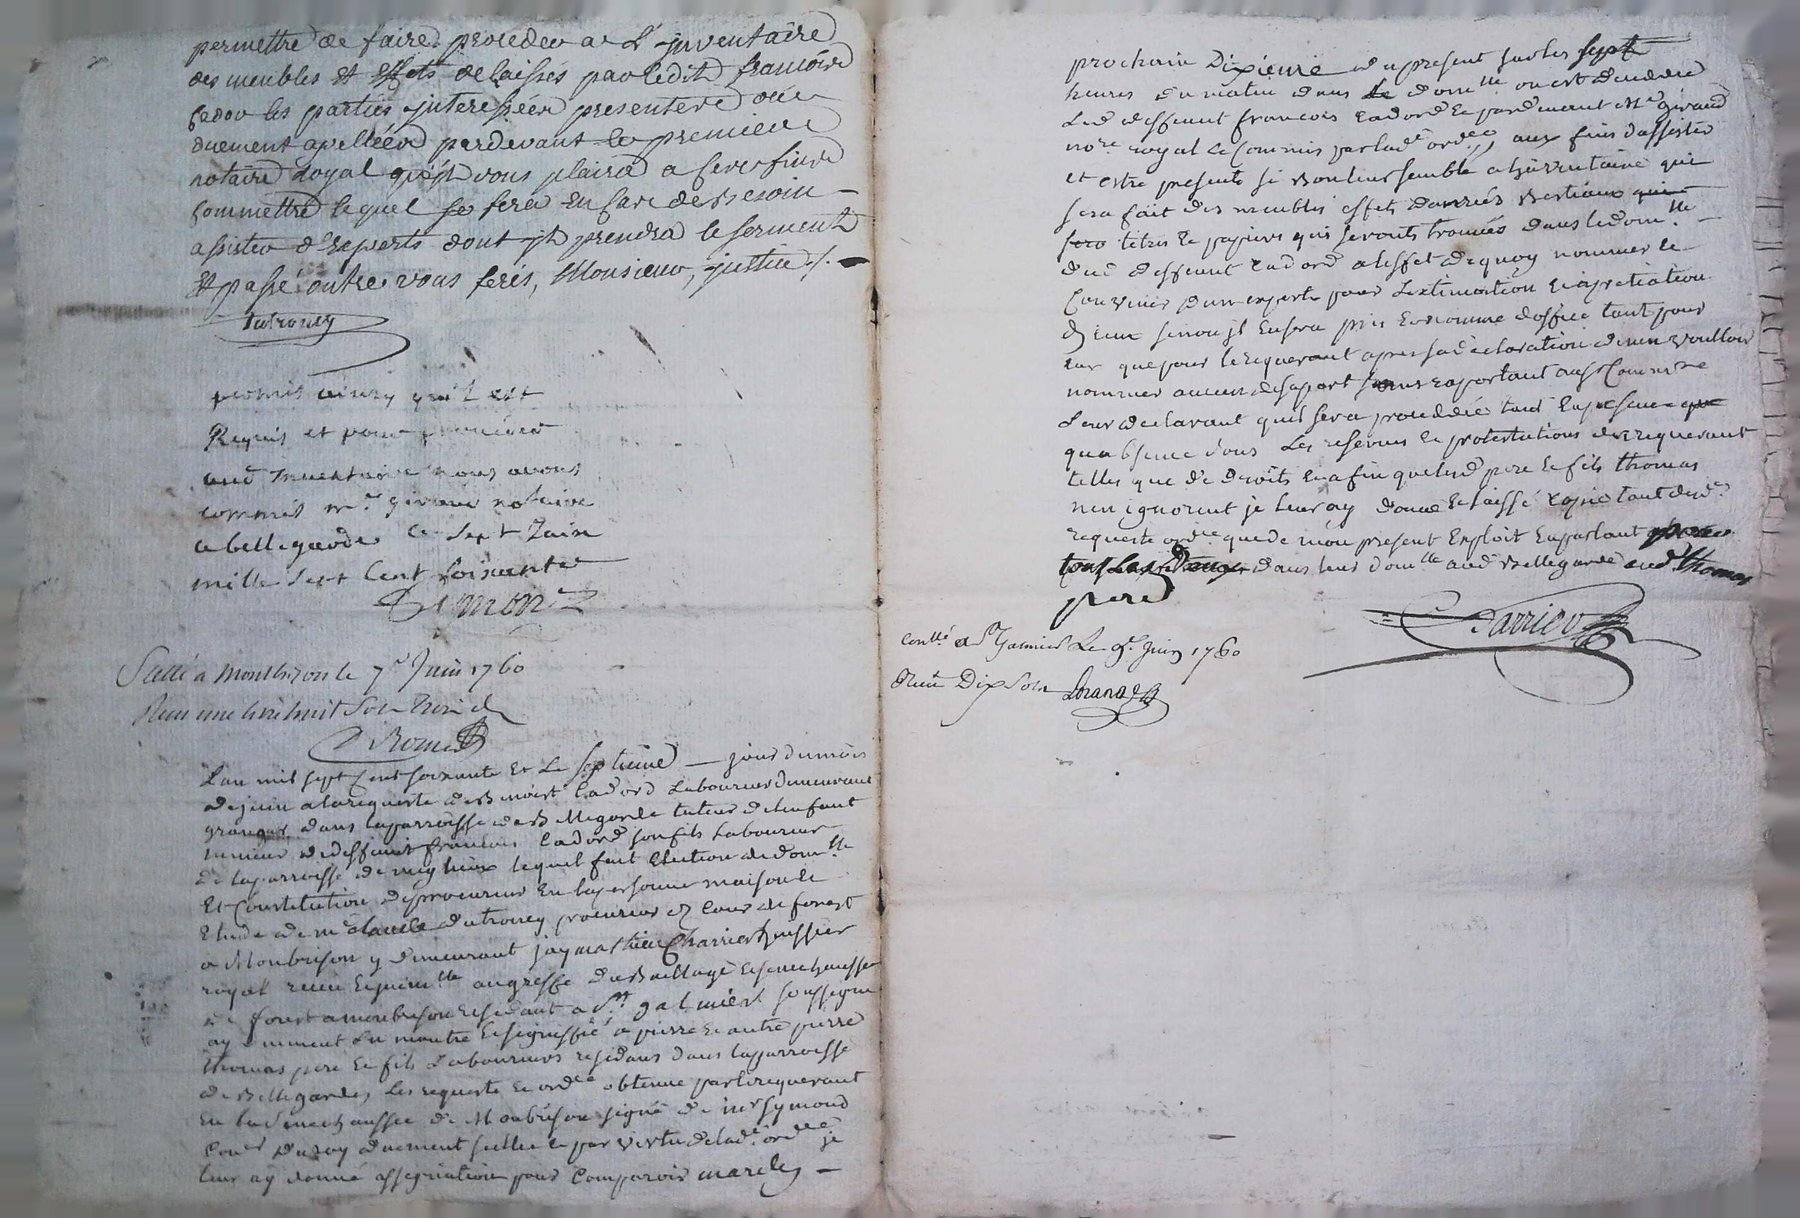 permettre de faire proceder a L'inventaire
des meubles et effets delaissés par ledit francois
Cador les parties interessées presentes ou
duement apellées pardevant le premier
notaire Royal qu'il vous plaira a ces fins
Commettre lequel se fera en cas de besoin
assister d'experts dont il prendra le serment
et passé outre vous ferés, Monsieur, justice ./.
Dutroncy
permis ainsy qu'il est
Requis et pour proceder
aud inventaire nous avons
commis mr. giraud notaire
a bellegarde ce sept Juin
mille sept Cent soixante
Simon
Scellé a montbrison le 7e Juin 1760
Reçu une livre huit Sols trois d
Lan mil sept Cent soixante et Le septieme jour du mois
de juin a la requeste de Benoist Cadord Laboureur demeurant
granger dans la parroisse de Bellegarde tuteur de lenfant
mineur de deffunt francois Cadord son fils Laboureur
de la parroisse de lequel fait Election de domlle
Et Constitution de procureur En la personne maison et
Etude de me claude dutroncy procureur es Cour de forest
a Monbrison y demeurant jay mathieu Charrier huissier
royal receu au greffe du Baillage et senechaussée
de forest a monbrison residant a st galmier soussigné
ay duement et signiffié a pierre et autre pierre
thomas pere et fils Laboureurs residans dans la parroisse
de Bellegarde, les requeste et ordce obtenue par le requerant
En la senechaussée de Monbrison signé de mr Symond
Conr du roy duement scellée et par vertu de lade ordce je
leur ay donné assignation pour Comparoir mardy
prochain Dixieme du present sur les sept
heures du matin dans le domlle ou est decedé
Led deffunt francois Cadord et pardevant Me giraud
nore royal et Commis par lade ordce aux fins dassister
et estre presents si Bon leur semble a linventaire qui
sera fait des meubles effets danrées Bestiaux
titres et papiers qui seront trouvés dans le domlle
dud deffunt Cadord a leffet de quoy nommer et
Convenir dun experts pour Lestimation et apretiation
diceux sinon il en sera pris et nommé doffice tant pour
eux que pour le requerant apres sa declaration de nen voulloir
nommer aucun de sa part
Leur declarant quil sera procedé tant En presence
quabsence sous Les reserves et protestations du requerant
telles que de droits et afin que lesd pere et fils thomas
nen ignorent je leur ay donné et laissé Copie tant desd
requeste ordce que de mon present Exploit En parlant
dans leur domlle aud Bellegarde aud thomas
pere
Charrier
Conllé a st Galmier Le 9e Juin 1760
Reçu Dix Sols